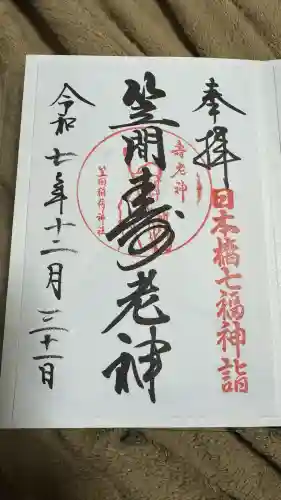 奉拝
日本橋七福神詣
笠間寿老神
寿老神
笠間稲荷神社
令和七年十二月三十一日